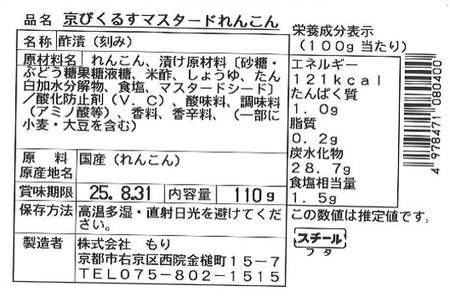 品名 京ぴくるすマスタードれんこん
名称 酢漬（刻み）
原材料名 れんこん、漬け原材料〔砂糖・
ぶどう糖果糖液糖、米酢、しょうゆ、たん
白加水分解物、食塩、マスタードシード〕
／酸化防止剤（Ｖ．Ｃ）、酸味料、調味料
（アミノ酸等）、香料、香辛料、（一部に
小麦・大豆を含む）
原料原産地名 国産（れんこん）
賞味期限 25. 8.31 内容量 110g
保存方法 高温多湿・直射日光を避けてくだ
さい。
製造者 株式会社 もり
京都市右京区西院金槌町１５－７
ＴＥＬ０７５－８０２－１５１５
栄養成分表示
（１００g当たり）
エネルギー
１２１kcal
たんぱく質
１．０g
脂質
０．２g
炭水化物
２８．７g
食塩相当量
１．５g
この数値は推定値です。
スチール
フタ
4 978471 080400